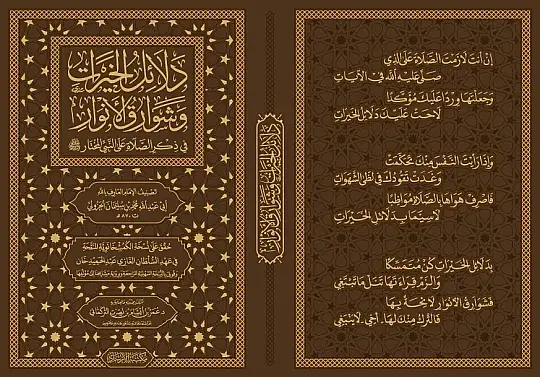 دلائل الخيرات
وشوارق الأنوار
في ذكر الصلاة على النبي المختار ﷺ
تصنيف الإمام العارف بالله
أبي عبد الله محمد بن سليمان الجزولي
ت ٨٧٠ هـ
حقق على نسخة الكمشخانوية المنقحة
في عهد السلطان الغازي عبد الحميد خان
دلائل الخيرات وشوارق الأنوار
إن أنت لازمت الصلاة على الذي
صلى عليه الله في الآيات
وجعلتها وردا عليك مؤكدا
لاحت عليك دلائل الخيرات
وإذا رأيت النفس منك تحكمت
وغدت تقودك في لظى الشهوات
فاصرف هواها بالصلاة مواظبا
لا سيما بدلائل الخيرات
بدلائل الخيرات كن متمسكا
والزم قراءتها تنل ما تبتغي
فشوارق الأنوار لائحة بها
فالترك منك لها أخي لا ينبغي